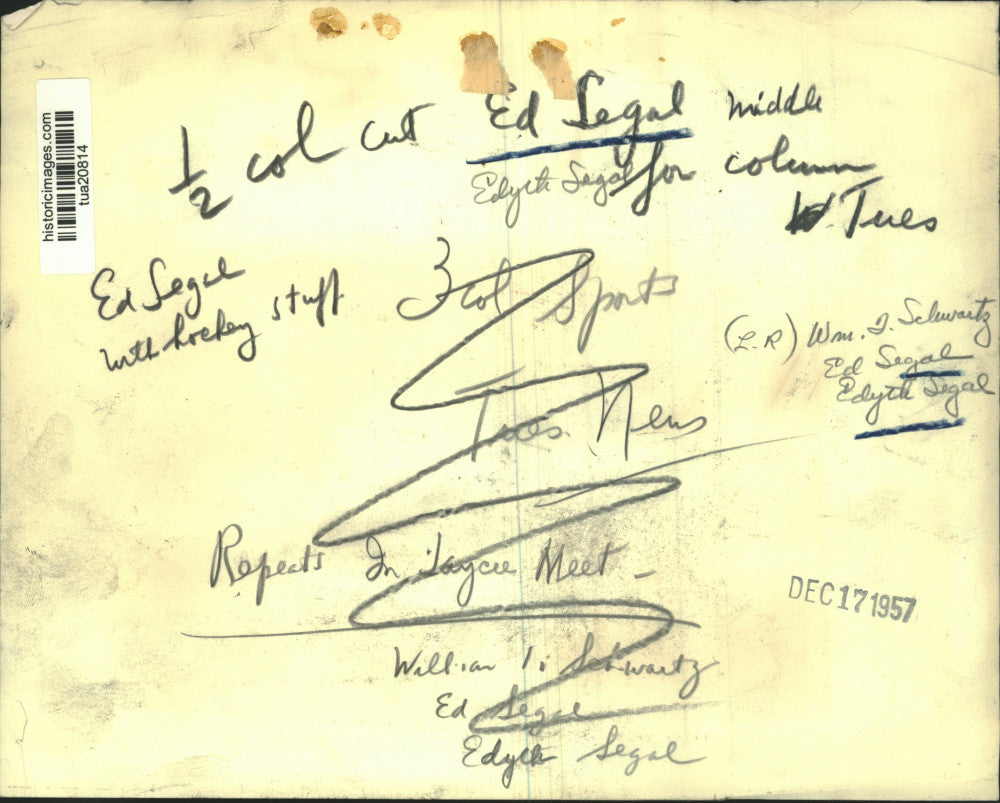 historicimages.com
tua20814
1/2 col cut Ed Segal middle
Edyth Segal for column
W. Tues
Ed Segal
with hockey stuff
3 col Sports
(L.R) Wm. I. Schwartz
Ed Segal
Edyth Segal
Tues. News
Repeats In Jaycee Meet -
DEC 17 1957
William I. Schwartz
Ed Segal
Edyth Segal